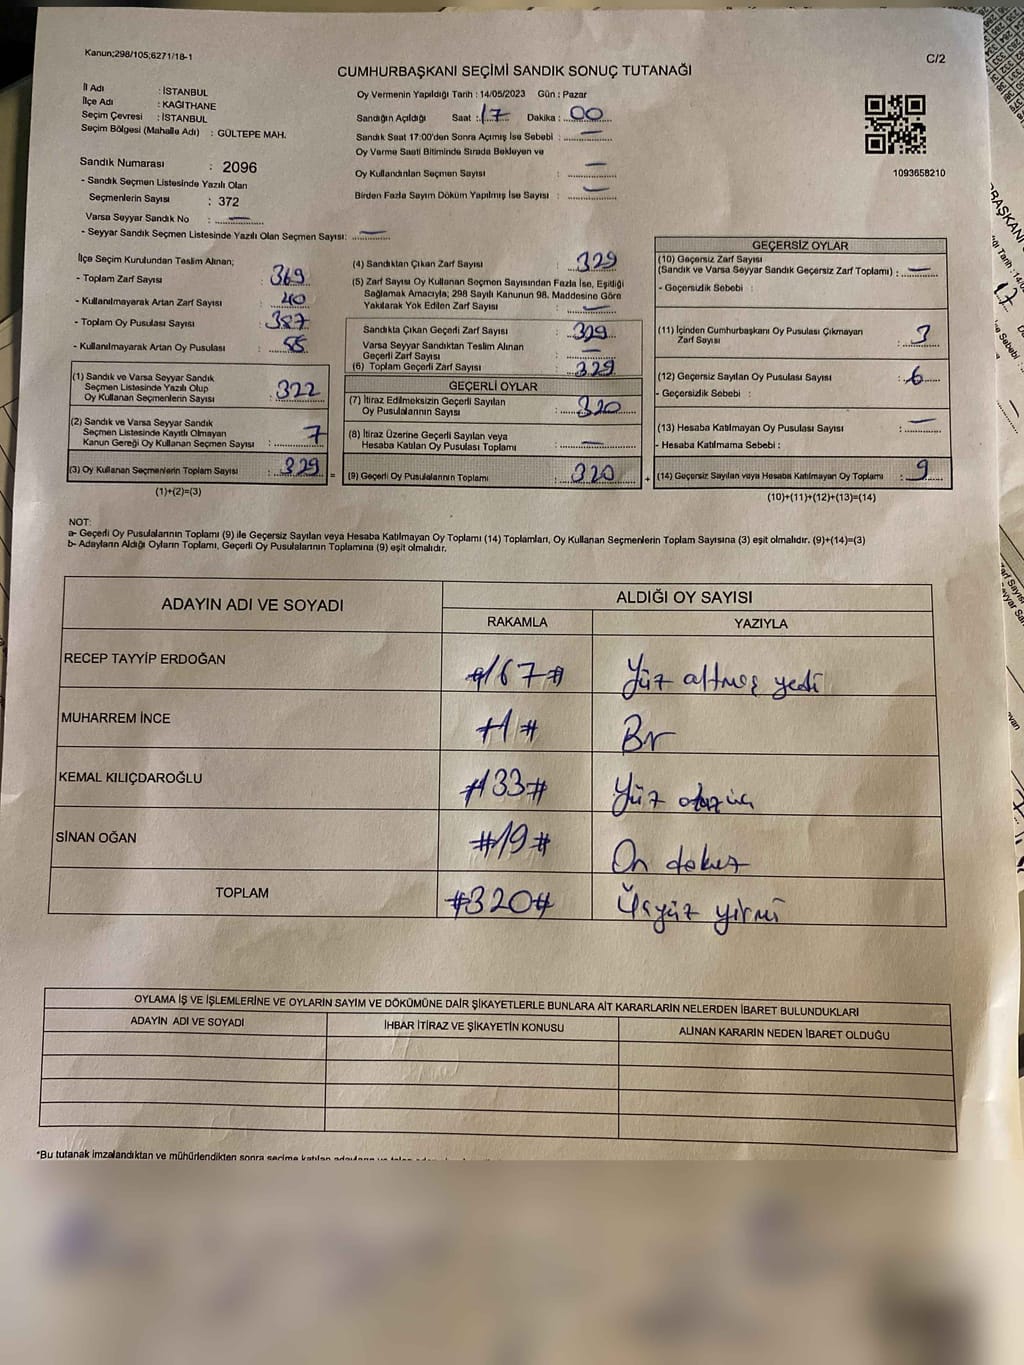 Kanun;298/105;6271/18-1
C/2
CUMHURBAŞKANI SEÇİMİ SANDIK SONUÇ TUTANAĞI
İl Adı : İSTANBUL
İlçe Adı : KAĞITHANE
Seçim Çevresi : İSTANBUL
Seçim Bölgesi (Mahalle Adı) : GÜLTEPE MAH.
Sandık Numarası : 2096
- Sandık Seçmen Listesinde Yazılı Olan
Seçmenlerin Sayısı : 372
Varsa Seyyar Sandık No : —
- Seyyar Sandık Seçmen Listesinde Yazılı Olan Seçmen Sayısı: —
Oy Vermenin Yapıldığı Tarih : 14/05/2023 Gün : Pazar
Sandığın Açıldığı Saat : 17 Dakika : 00
Sandık Saat 17:00'den Sonra Açımış İse Sebebi : —
Oy Verme Saati Bitiminde Sırada Bekleyen ve
Oy Kullandırılan Seçmen Sayısı : —
Birden Fazla Sayım Döküm Yapılmış İse Sayısı : —
1093658210
İlçe Seçim Kurulundan Teslim Alınan;
- Toplam Zarf Sayısı : 369
- Kullanılmayarak Artan Zarf Sayısı : 40
- Toplam Oy Pusulası Sayısı : 387
- Kullanılmayarak Artan Oy Pusulası : 58
(1) Sandık ve Varsa Seyyar Sandık
Seçmen Listesinde Yazılı Olup
Oy Kullanan Seçmenlerin Sayısı : 322
(2) Sandık ve Varsa Seyyar Sandık
Seçmen Listesinde Kayıtlı Olmayan
Kanun Gereği Oy Kullanan Seçmen Sayısı : 7
(3) Oy Kullanan Seçmenlerin Toplam Sayısı : 329
(1)+(2)=(3)
(4) Sandıktan Çıkan Zarf Sayısı : 329
(5) Zarf Sayısı Oy Kullanan Seçmen Sayısından Fazla İse, Eşitliği
Sağlamak Amacıyla; 298 Sayılı Kanunun 98. Maddesine Göre
Yakılarak Yok Edilen Zarf Sayısı : —
Sandıkta Çıkan Geçerli Zarf Sayısı : 329
Varsa Seyyar Sandıktan Teslim Alınan
Geçerli Zarf Sayısı : —
(6) Toplam Geçerli Zarf Sayısı : 329
GEÇERLİ OYLAR
(7) İtiraz Edilmeksizin Geçerli Sayılan
Oy Pusulalarının Sayısı : 320
(8) İtiraz Üzerine Geçerli Sayılan veya
Hesaba Katılan Oy Pusulası Toplamı : —
= (9) Geçerli Oy Pusulalarının Toplamı : 320
GEÇERSİZ OYLAR
(10) Geçersiz Zarf Sayısı
(Sandık ve Varsa Seyyar Sandık Geçersiz Zarf Toplamı) : —
- Geçersizlik Sebebi :
(11) İçinden Cumhurbaşkanı Oy Pusulası Çıkmayan
Zarf Sayısı : 3
(12) Geçersiz Sayılan Oy Pusulası Sayısı : 6
- Geçersizlik Sebebi :
(13) Hesaba Katılmayan Oy Pusulası Sayısı : —
- Hesaba Katılmama Sebebi :
+ (14) Geçersiz Sayılan veya Hesaba Katılmayan Oy Toplamı : 9
(10)+(11)+(12)+(13)=(14)
NOT:
a- Geçerli Oy Pusulalarının Toplamı (9) ile Geçersiz Sayılan veya Hesaba Katılmayan Oy Toplamı (14) Toplamları, Oy Kullanan Seçmenlerin Toplam Sayısına (3) eşit olmalıdır. (9)+(14)=(3)
b- Adayların Aldığı Oyların Toplamı, Geçerli Oy Pusulalarının Toplamına (9) eşit olmalıdır.
ADAYIN ADI VE SOYADI ALDIĞI OY SAYISI
RAKAMLA YAZIYLA
RECEP TAYYİP ERDOĞAN #167# Yüz altmış yedi
MUHARREM İNCE #1# Bir
KEMAL KILIÇDAROĞLU #133# Yüz otuzüç
SİNAN OĞAN #19# On dokuz
TOPLAM #320# Üçyüz yirmi
OYLAMA İŞ VE İŞLEMLERİNE VE OYLARIN SAYIM VE DÖKÜMÜNE DAİR ŞİKAYETLERLE BUNLARA AİT KARARLARIN NELERDEN İBARET BULUNDUKLARI
ADAYIN ADI VE SOYADI İHBAR İTİRAZ VE ŞİKAYETİN KONUSU ALINAN KARARIN NEDEN İBARET OLDUĞU
*Bu tutanak imzalandıktan ve mühürlendikten sonra seçime katılan